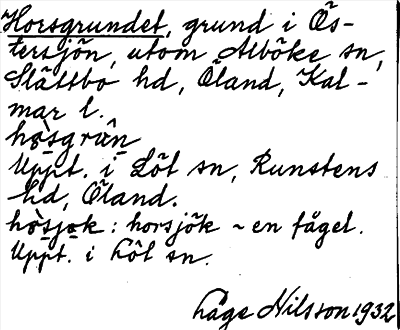 Horsgrundet, grund i Ös-
tersjön, utom Alböke sn,
Slättbo hd, Öland, Kal-
mar l.
hòsgrun
Uppt. i Löt sn, Runstens
hd, Öland.
hòsjok: horsjök ~ en fågel.
Uppt. i Löt sn.
Låge Nilsson 1932